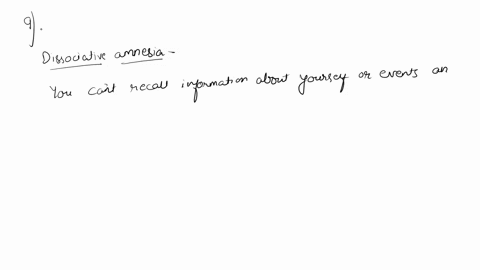 9).
Dissociative amnesia -
You can't recall information about yourself or events an